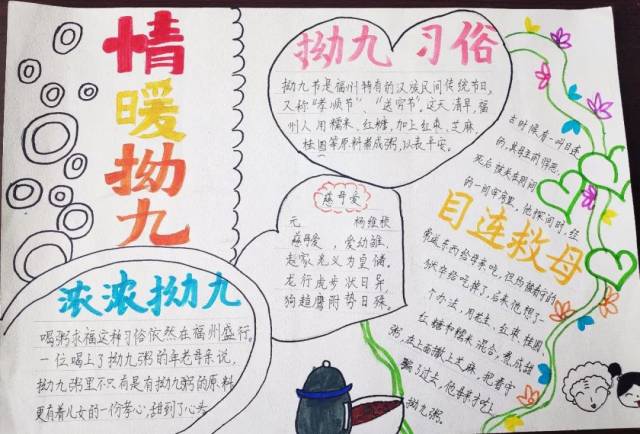 情
暖
拗
九
拗九习俗
拗九节是福州特有的汉族民间传统节日,
又称“孝顺节”、“送穷节”,这天清早,福
州人用糯米、红糖,加上红枣、芝麻、
桂圆等原料煮成粥,以表平安。
慈母爱
元 杨维桢
慈母爱,爱幼雏,
赵家光义为皇储。
龙行虎步状日异,
狗趋鹰附势日殊。
浓浓拗九
喝粥求福这种习俗依然在福州盛行。
一位喝上了拗九粥的年老母亲说,
拗九粥里不只有是有拗九粥的原料
更有着儿女的一份孝心,甜到了心头
目连救母
古时候有一叫目连
的,其母生前得恶,
死后被关在阴间
的一间牢房里,他探间时,经
常送东西给母亲吃,但均被看守的
狱卒给吃掉了,后来他想了一
个办法,用花生、红枣、桂圆、
红糖和糯米混合,煮成甜
粥,在上面撒上芝麻,把看守
骗了过去,他母亲才吃上
拗九粥。